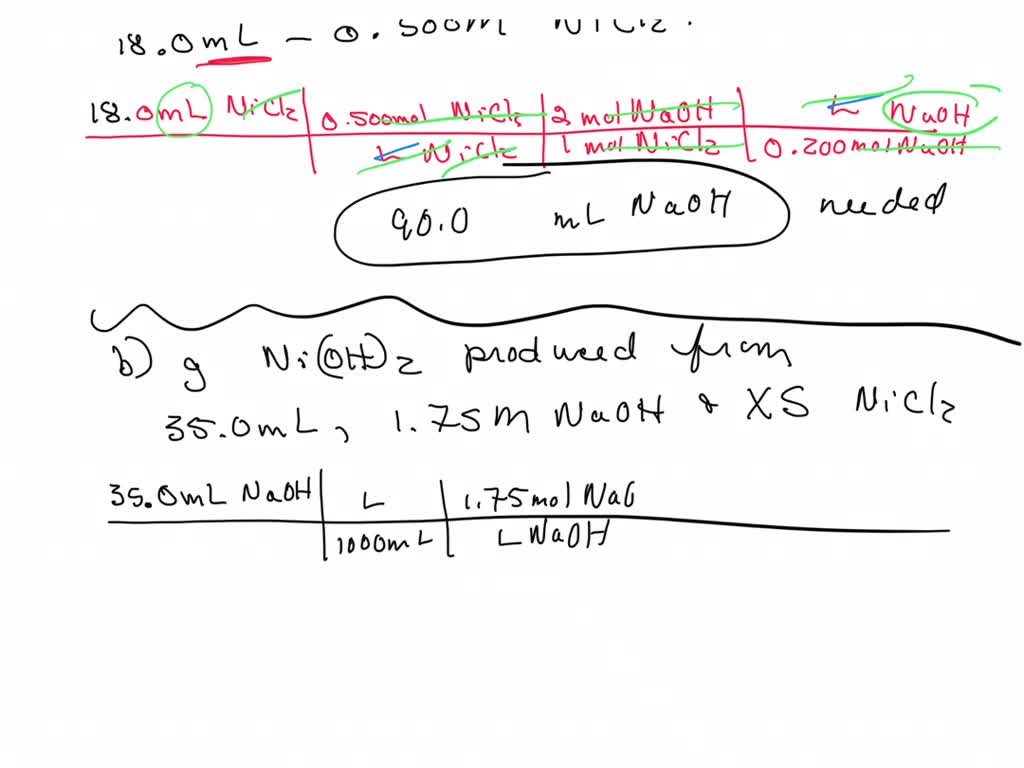 18.0mL – 0.500M NiCl2.
18.0mL NiCl2 | 0.500mol NiCl2 | 2 mol NaOH | L NaOH
L NiCl2 | 1 mol NiCl2 | 0.200molNaOH
90.0 mL NaOH needed
b) g Ni(OH)2 produced from
35.0mL, 1.75M NaOH & XS NiCl2
35.0mL NaOH | L | 1.75mol NaO
1000mL | L NaOH